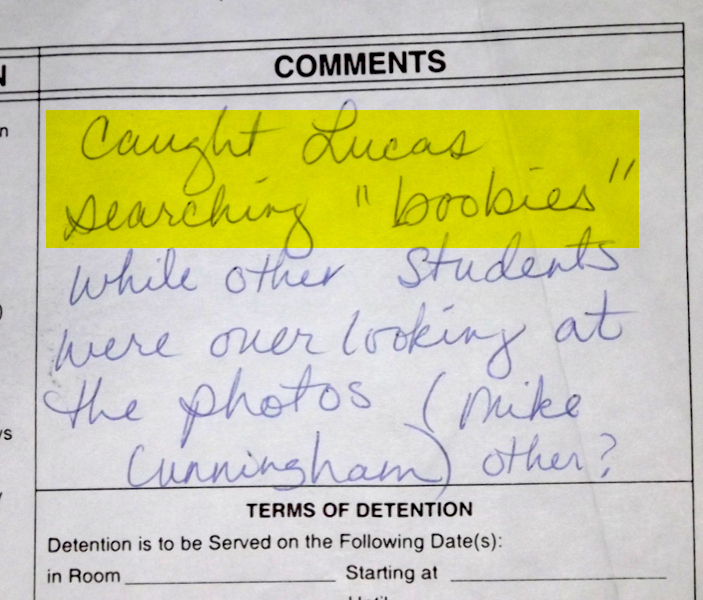 N
COMMENTS
n
Caught Lucas
searching "boobies"
while other students
were over looking at
the photos (Mike
Cunningham) other?
)
/s
TERMS OF DETENTION
Detention is to be Served on the Following Date(s):
in Room Starting at